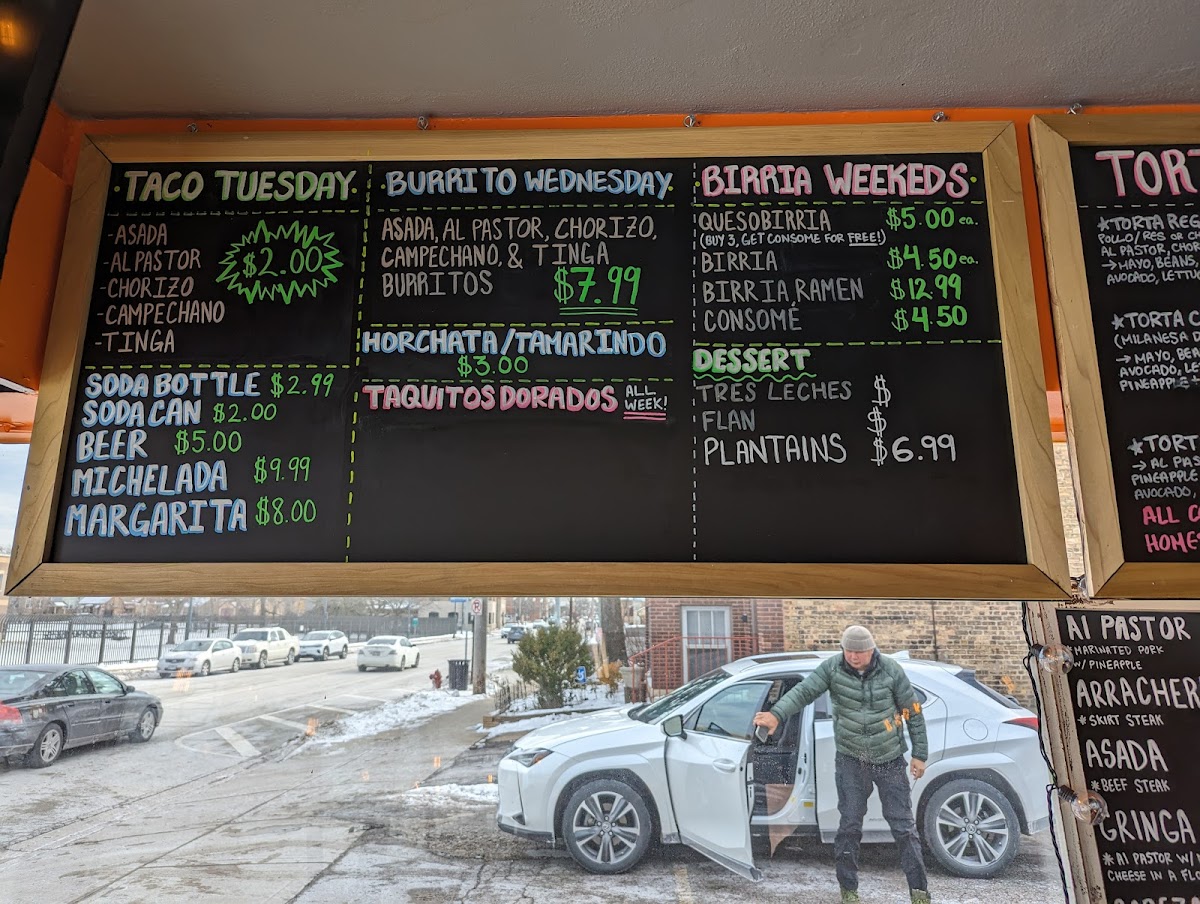 TACO TUESDAY
-ASADA
-AL PASTOR
-CHORIZO
-CAMPECHANO
-TINGA
$2.00
SODA BOTTLE $2.99
SODA CAN $2.00
BEER $5.00
MICHELADA $9.99
MARGARITA $8.00
BURRITO WEDNESDAY
ASADA, AL PASTOR, CHORIZO,
CAMPECHANO, & TINGA
BURRITOS $7.99
HORCHATA/TAMARINDO
$3.00
TAQUITOS DORADOS ALL
WEEK!
BIRRIA WEEKEDS
QUESOBIRRIA $5.00 ea.
(BUY 3, GET CONSOME FOR FREE!)
BIRRIA $4.50 ea.
BIRRIA RAMEN $12.99
CONSOMÉ $4.50
DESSERT
TRES LECHES $
FLAN $
PLANTAINS $6.99
TOR
*TORTA REG
POLLO/RES O
AL PASTOR, CHO
→MAYO, BEANS,
AVOCADO, LETTU
*TORTA C
(MILANESA D
→ MAYO, BEA
AVOCADO, LE
PINEAPPLE
*TORT
→ AL PAS
PINEAPPLE
AVOCADO,
ALL CO
HOME
Al PASTOR
MARINATED PORK
W/ PINEAPPLE
ARRACHER
* SKIRT STEAK
ASADA
* BEEF STEAK
GRINGA
* Al PASTOR W/
CHEESE IN A FLO